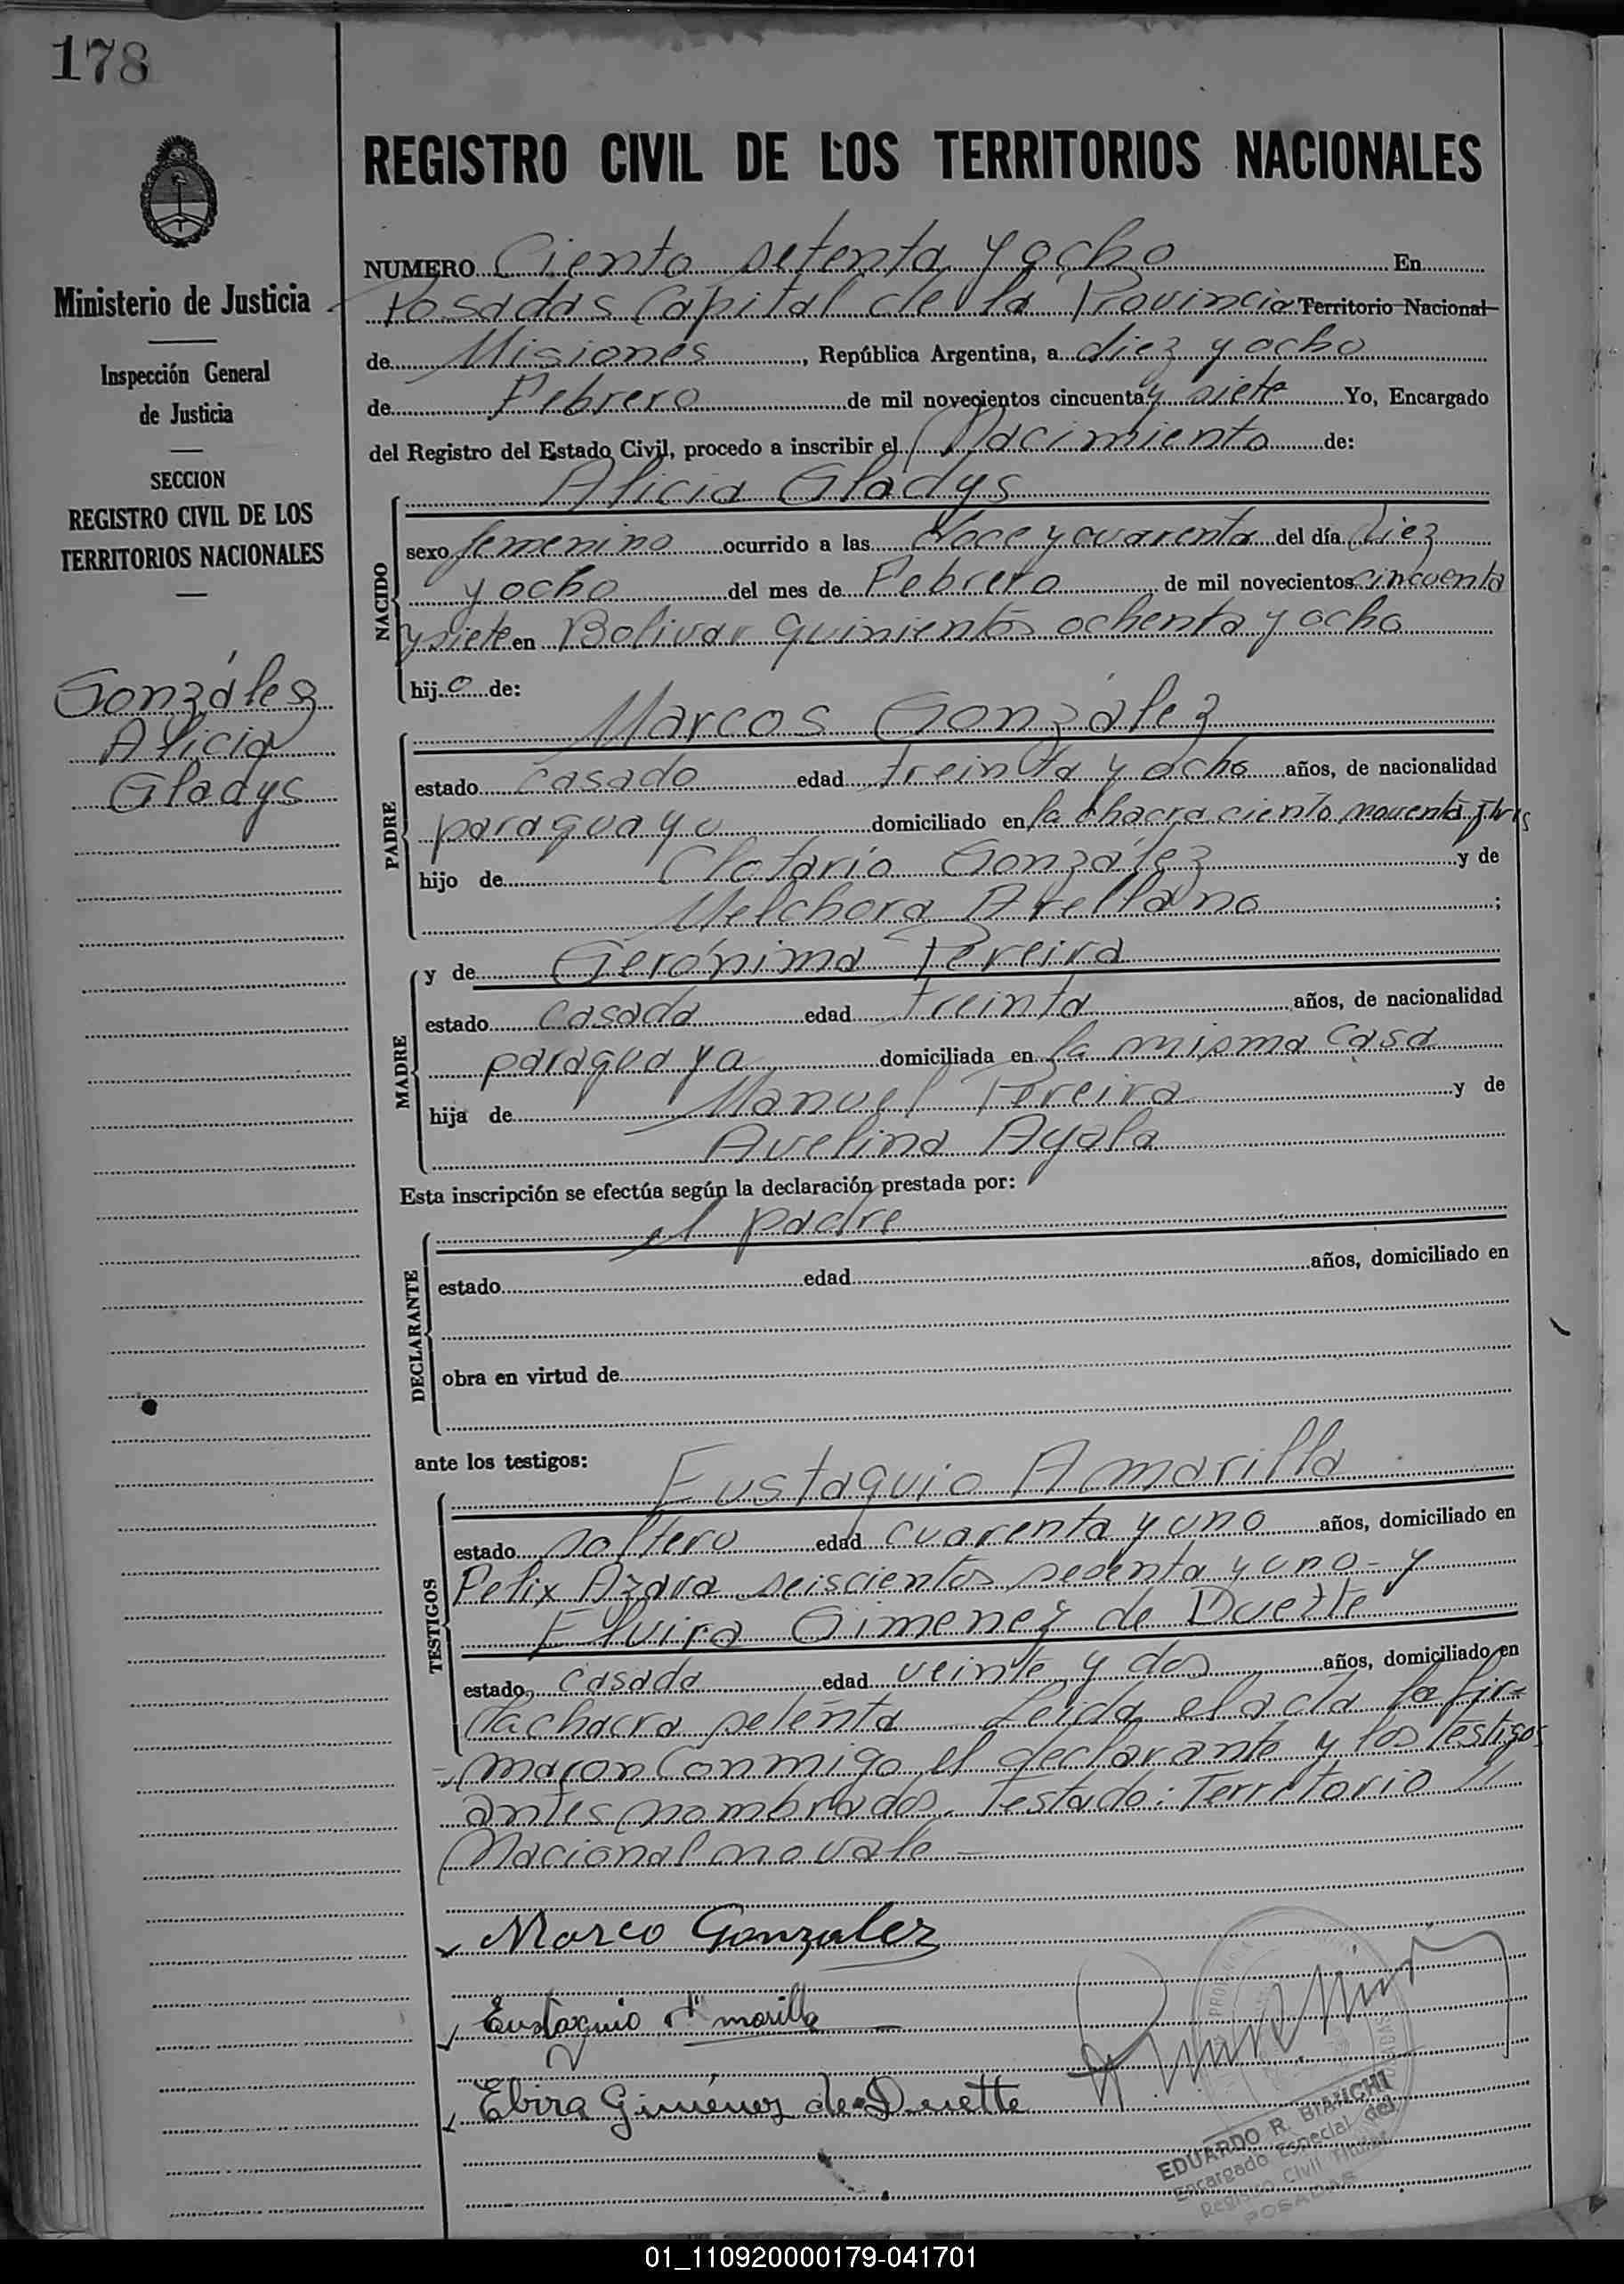 178
REGISTRO CIVIL DE LOS TERRITORIOS NACIONALES
Ministerio de Justicia
Inspección General
de Justicia
SECCION
REGISTRO CIVIL DE LOS
TERRITORIOS NACIONALES
González
Alicia
Gladys
NUMERO Ciento setenta y ocho En
Posadas Capital de la Provincia Territorio Nacional
de Misiones, República Argentina, a diez y ocho
de Febrero de mil novecientos cincuenta y siete Yo, Encargado
del Registro del Estado Civil, procedo a inscribir el Nacimiento de:
Alicia Gladys
NACIDO
sexo femenino ocurrido a las doce y cuarenta del día diez
y ocho del mes de Febrero de mil novecientos cincuenta
y siete en Bolivar quinientos ochenta y ocho
hij o de:
Marcos González
PADRE
estado casado edad treinta y ocho años, de nacionalidad
paraguayo domiciliado en la chacra ciento noventa y tres
hijo de Clotario González y de
Melchora Arellano ;
MADRE
y de Gerónima Pereira
estado casada edad treinta años, de nacionalidad
paraguaya domiciliada en la misma casa
hija de Manuel Pereira y de
Avelina Ayala
Esta inscripción se efectúa según la declaración prestada por:
el padre
DECLARANTE
estado edad años, domiciliado en
obra en virtud de
ante los testigos:
Eustaquio Amarilla
TESTIGOS
estado soltero edad cuarenta y uno años, domiciliado en
Felix Azara seiscientos sesenta y uno - y
Elvira Gimenez de Duette
estado casada edad veinte y dos años, domiciliado en
la chacra setenta Leida el acta la fir=
=maron conmigo el declarante y los testigos
antes nombrados. Testado: Territorio //
Nacional no vale -
Marco Gonzalez
Eustaquio Amarilla
Elvira Giménez de Duette
EDUARDO R. BIANCHI
Encargado Especial del
Registro Civil Titular
POSADAS
01_110920000179-041701